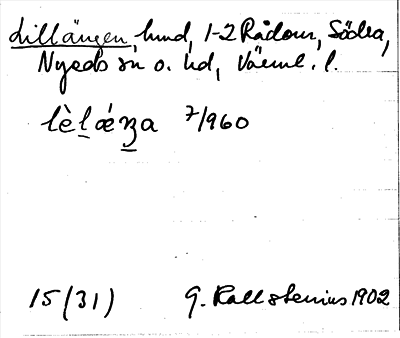 Lillängen, hmd, 1-2 Rådom, Södra,
Nyeds sn o. hd, Värml. l.
lèl̲ǽŋ̲a 7/960
15(31) G. Kallstenius 1902